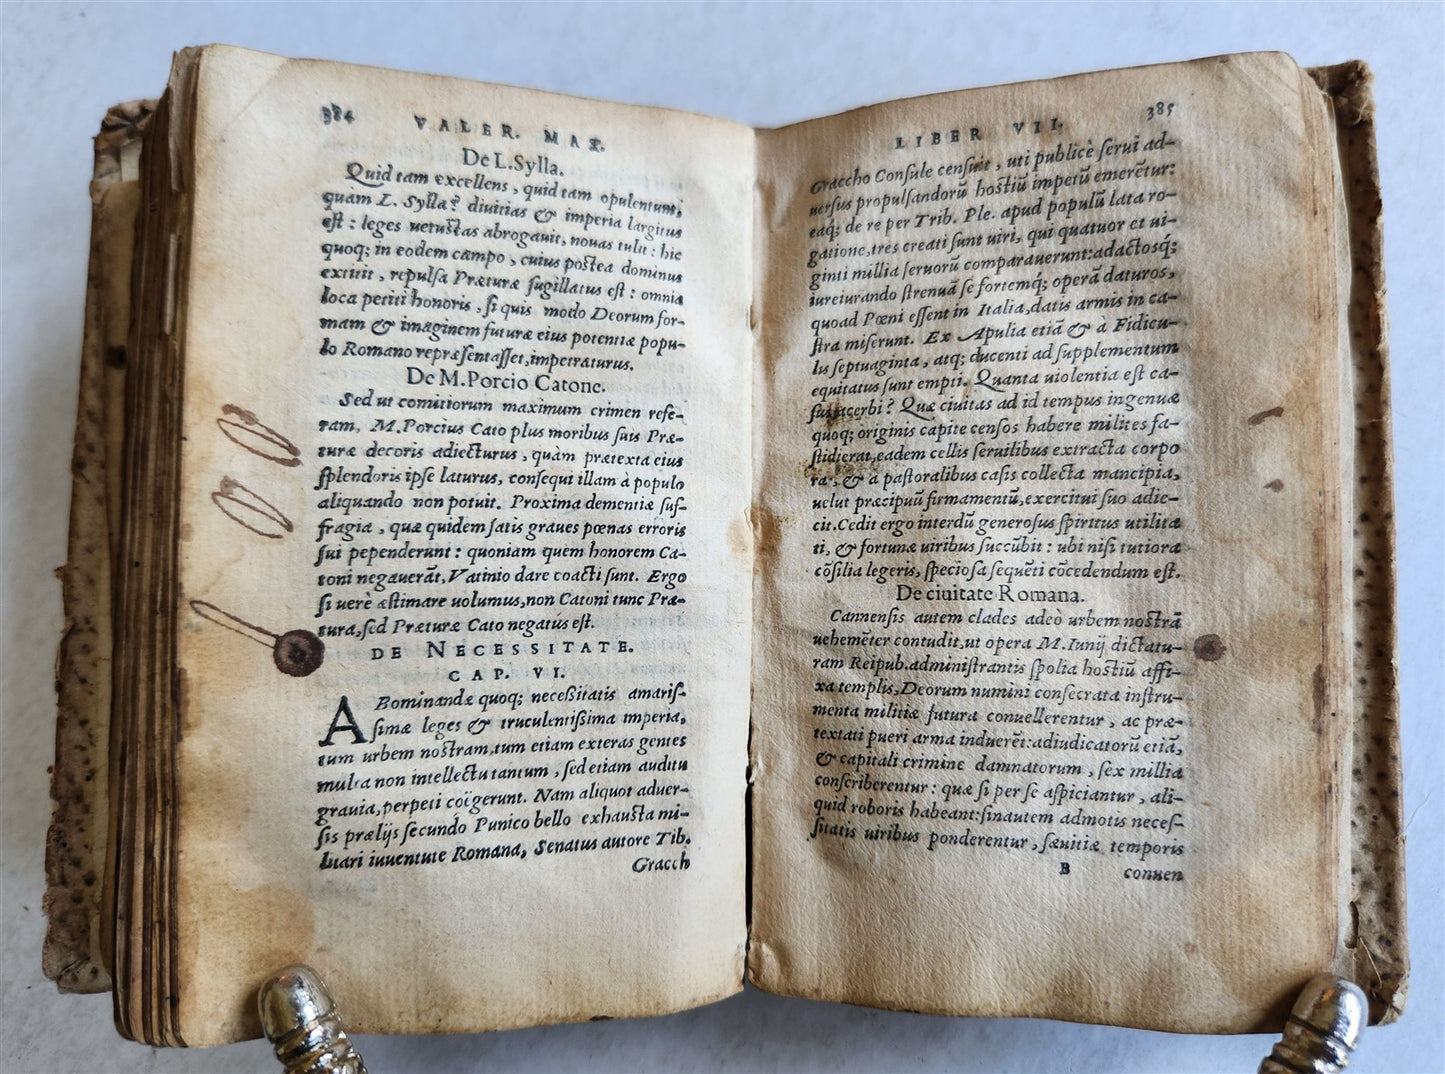 384
VALER. MAX.
De L. Sylla.
Quid tam excellens, quid tam opulentum,
quam L. Sylla? diuitias & imperia largitus
est: leges uetustas abrogauit, nouas tulit: hic
quoq; in eodem campo, cuius postea dominus
extitit, repulsa Præturæ sugillatus est: omnia
loca petiti honoris, si quis modo Deorum for-
mam & imaginem futuræ eius potentiæ popu-
lo Romano repræsentasset, impetraturus.
De M. Porcio Catone.
Sed ut comitiorum maximum crimen refe-
ram, M. Porcius Cato plus moribus suis Præ-
turæ decoris adiecturus, quàm prætexta eius
splendoris ipse laturus, consequi illam à populo
aliquando non potuit. Proxima dementiæ suf-
fragia, quæ quidem satis graues pœnas erroris
sui pependerunt: quoniam quem honorem Ca-
toni negauerāt, Vatinio dare coacti sunt. Ergo
si uerè æstimare uolumus, non Catoni tunc Præ-
tura, sed Præturæ Cato negatus est.
DE NECESSITATE.
CAP. VI.
ABominandæ quoq; necessitatis amaris-
simæ leges & truculentissima imperia,
tum urbem nostram, tum etiam exteras gentes
multa non intellectu tantum, sed etiam auditu
grauia, perpeti coëgerunt. Nam aliquot aduer-
sis prælijs secundo Punico bello exhausta mi-
litari iuuentute Romana, Senatus autore Tib.
Gracch
385
LIBER VII.
Graccho Consule censuit, uti publicè serui ad-
uersus propulsandorū hostiū impetū emerētur:
eaq; de re per Trib. Ple. apud populū lata ro-
gatione, tres creati sunt uiri, qui quatuor et ui-
ginti millia seruorū comparauerunt: adactosq́;
iureiurando strenuā se fortemq; operā daturos,
quoad Pœni essent in Italia, datis armis in ca-
stra miserunt. Ex Apulia etiā & à Fidicu-
lis septuaginta, atq; ducenti ad supplementum
equitatus sunt empti. Quanta uiolentia est ca-
sus acerbi? Quæ ciuitas ad id tempus ingenuæ
quoq; originis capite censos habere milites fa-
stidierat, eadem cellis seruilibus extracta corpo
ra, & à pastoralibus casis collecta mancipia,
uelut præcipuū firmamentū, exercitui suo adie-
cit. Cedit ergo interdū generosus spiritus utilita
ti, & fortunæ uiribus succūbit: ubi nisi tutiora
cōsilia legeris, speciosa sequēti cōcedendum est.
De ciuitate Romana.
Cannensis autem clades adeò urbem nostrā
uehemēter contudit, ut opera M. Iunij dictatu-
ram Reipub. administrantis spolia hostiū affi-
xa templis, Deorum numini consecrata instru-
menta militiæ futura conuellerentur, ac præ-
textati pueri arma induerēt: adiudicatorū etiā,
& capitali crimine damnatorum, sex millia
conscriberentur: quæ si per se aspiciantur, ali-
quid roboris habeant: sin autem admotis neces-
sitatis uiribus ponderentur, sæuitiæ temporis
B conuen